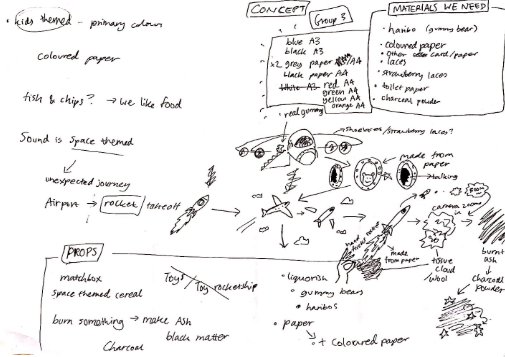 • kids themed - primary colours
coloured paper
fish & chips? → we like food
Sound is space themed
unexpected journey
Airport → rocket / takeoff
CONCEPT
Group 3
blue A3
black A3
x2 grey paper /A4
black paper A4
white A3 red A4
green A4
yellow A4
orange A4
• real gummy
MATERIALS WE NEED
• haribo (gummy bear)
• coloured paper
• other card/paper
• laces
• strawberry laces
• toilet paper
• charcoal powder
shoelaces/strawberry laces?
made from
paper
→ talking
camera zoom
in
boom
made
from paper
tissue
cloud
/wool
burnt
ash
charcoal
powder
PROPS
matchbox
space themed cereal
Toys / Toy rocketship
burn something → make Ash
black matter
Charcoal
• liquorish
• gummy bears
• haribos
• paper
+ coloured paper